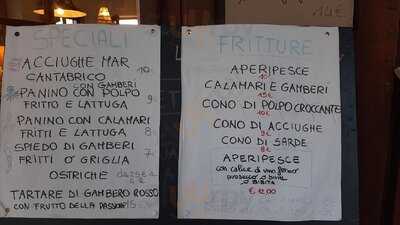 SPECIALI
ACCIUGHE MAR 10
CANTABRICO
CON GAMBERI
PANINO CON POLPO
FRITTO E LATTUGA 9
PANINO CON CALAMARI
FRITTI E LATTUGA 8
SPIEDO DI GAMBERI
FRITTI O GRIGLIA 7
OSTRICHE
TARTARE DI GAMBERO ROSSO
CON FRUTTO DELLA PASSION 15
14€
FRITTURE
APERIPESCE
10€
CALAMARI E GAMBERI
15€
CONO DI POLPO CROCCANTE
10€
CONO DI ACCIUGHE
9€
CONO DI SARDE
8€
APERIPESCE
con calice di vino fermo
prosecco o birra
o BIBITA
€ 12,00